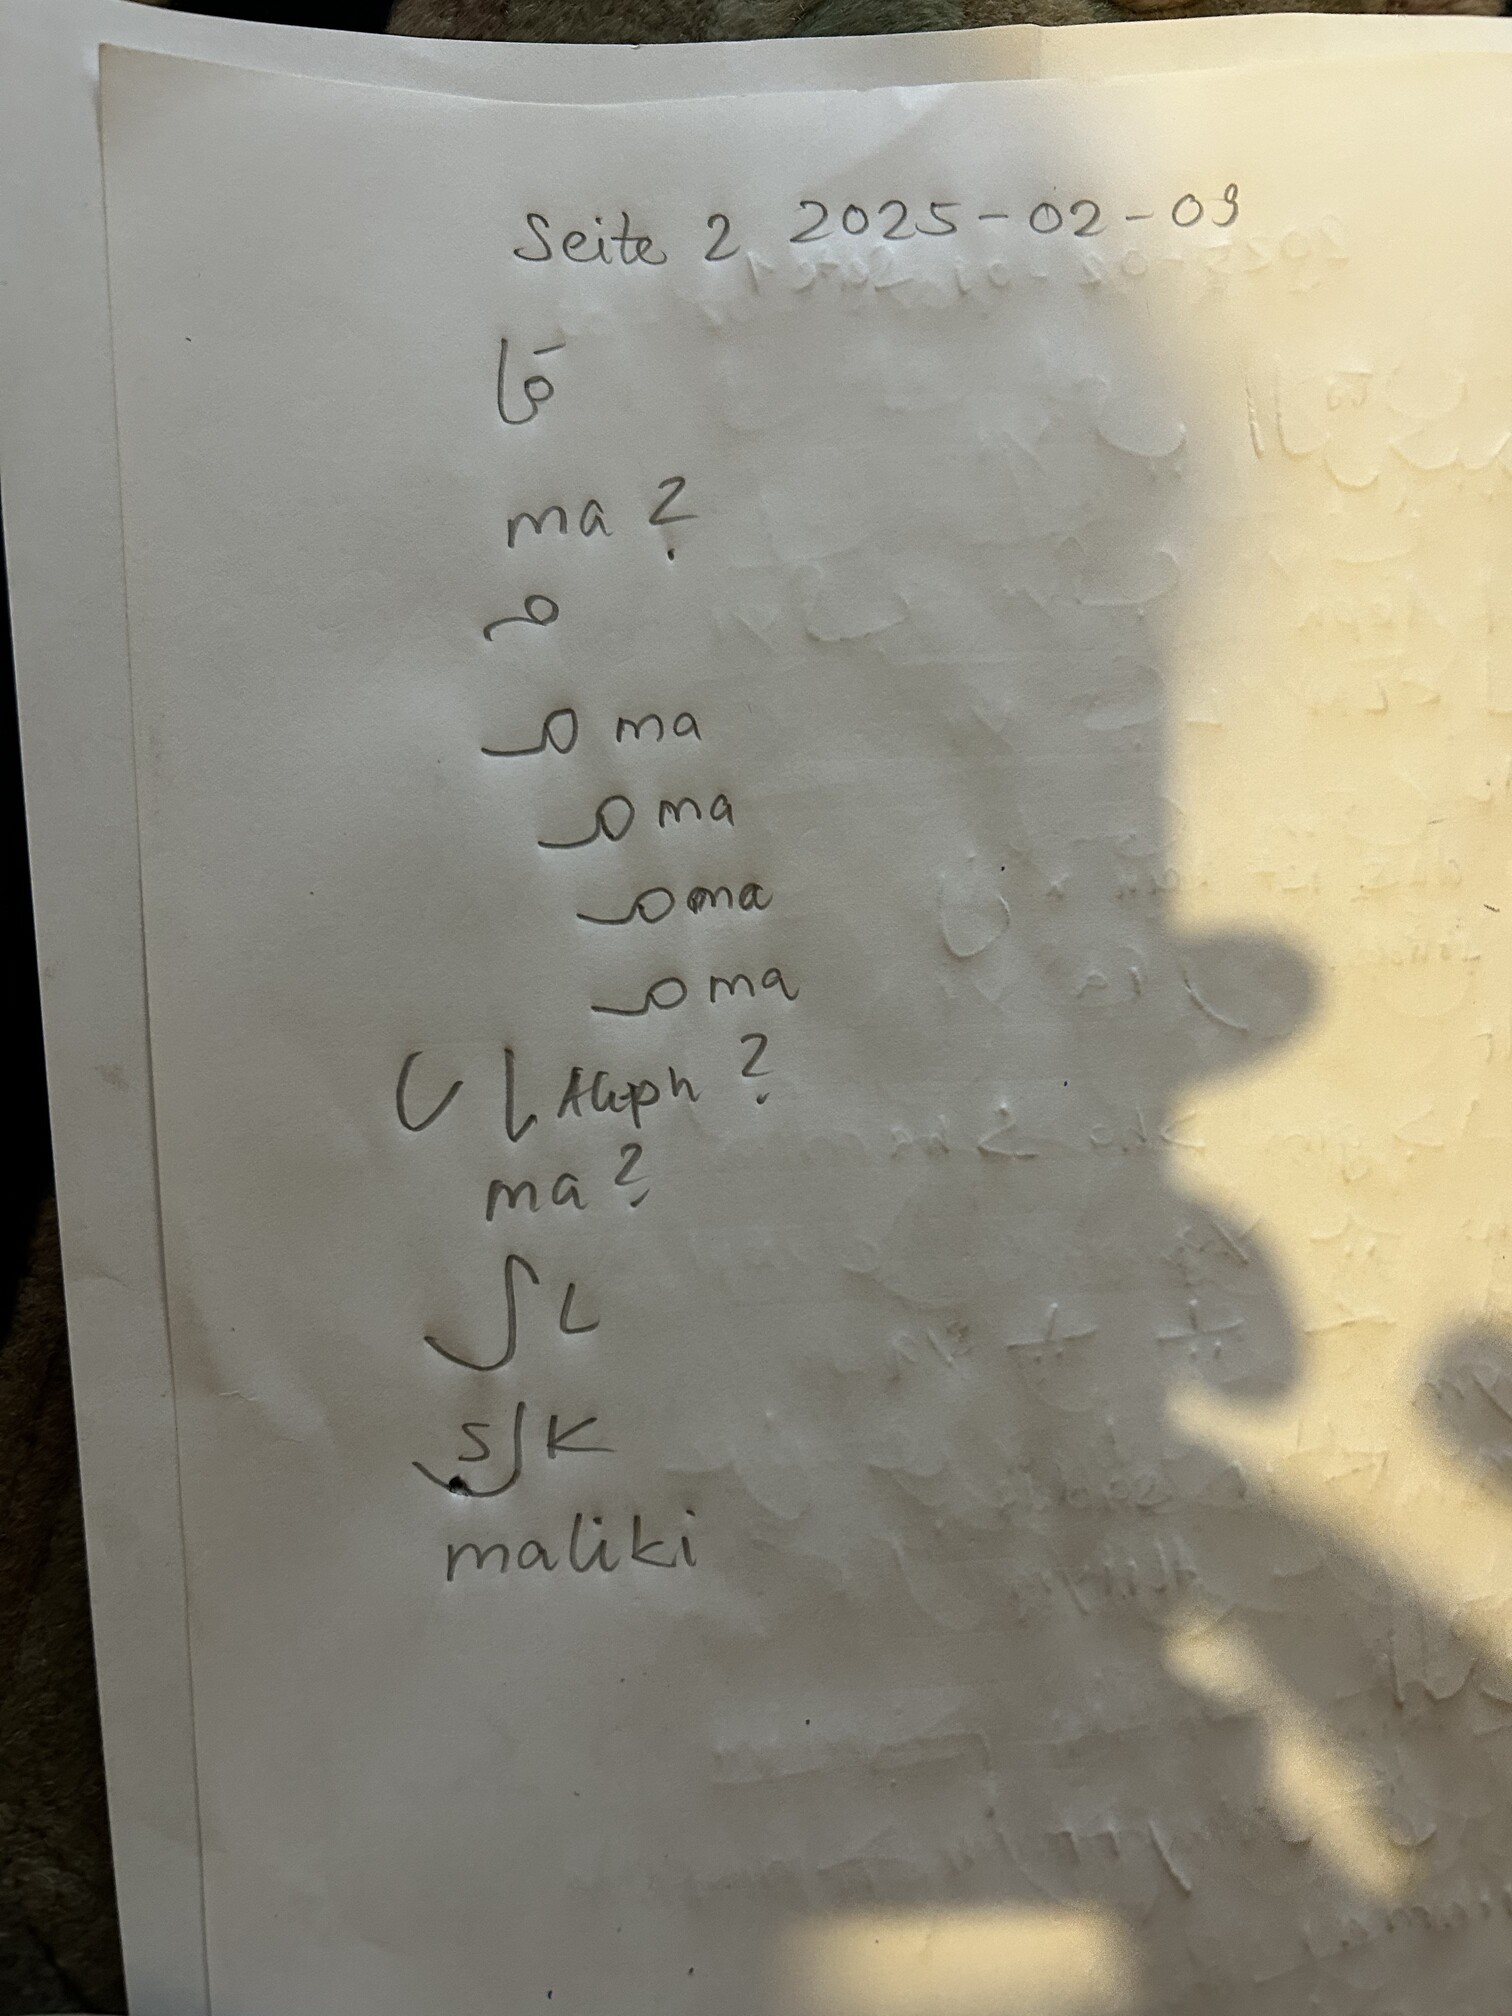 Seite 2 2025-02-09
مَا
ma ?
مـ
ـمـ ma
ـمـ ma
ـمـ ma
ـمـ ma
ل ا Aleph ?
ma ?
ل L
S ل K
maliki